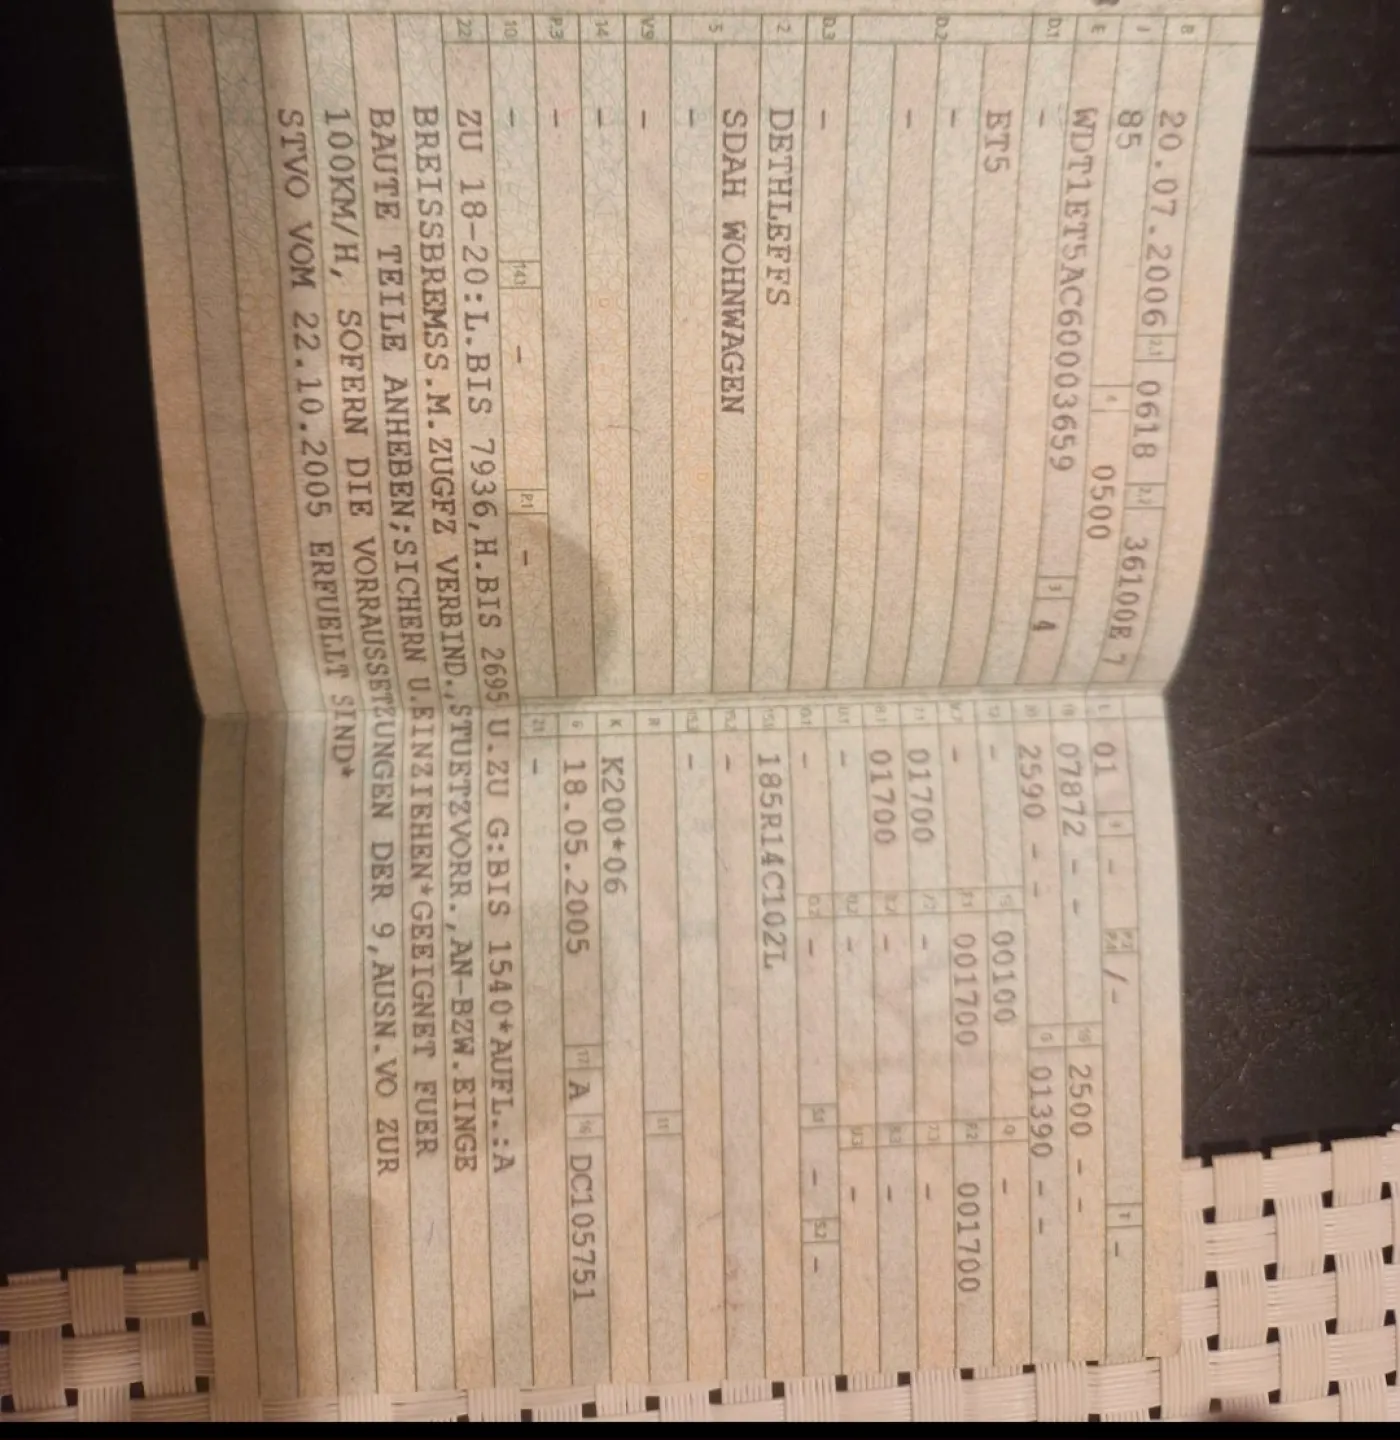 B 20.07.2006 2.1 0618 2.2 36100E 7
J 85 4 0500
E WDT1ET5AC60003659 3 4
D.1 -
ET5
D.2 -
-
D.3 -
2 DETHLEFFS
SDAH WOHNWAGEN
5 -
V.9 -
14 -
P.3 -
10 - 14.1 - P.1 -
L 01 9 - P.2 P.4 /- T -
18 07872 - - 19 2500 - -
20 2590 - - G 01390 - -
12 - 13 00100 Q -
V.7 - F.1 001700 F.2 001700
7.1 01700 7.2 - 7.3 -
8.1 01700 8.2 - 8.3 -
U.1 - U.2 - U.3 -
O.1 - O.2 - S.1 - S.2 -
15.1 185R14C102L
15.2 -
15.3 -
R 11
K K200*06
6 18.05.2005 17 A 16 DC105751
21 -
22 ZU 18-20:L.BIS 7936,H.BIS 2695 U.ZU G:BIS 1540*AUFL.:A
BREISSBREMSS.M.ZUGFZ VERBIND.,STUETZVORR.,AN-BZW.EINGE
BAUTE TEILE ANHEBEN;SICHERN U.EINZIEHEN*GEEIGNET FUER
100KM/H, SOFERN DIE VORRAUSSETZUNGEN DER 9,AUSN.VO ZUR
STVO VOM 22.10.2005 ERFUELLT SIND*